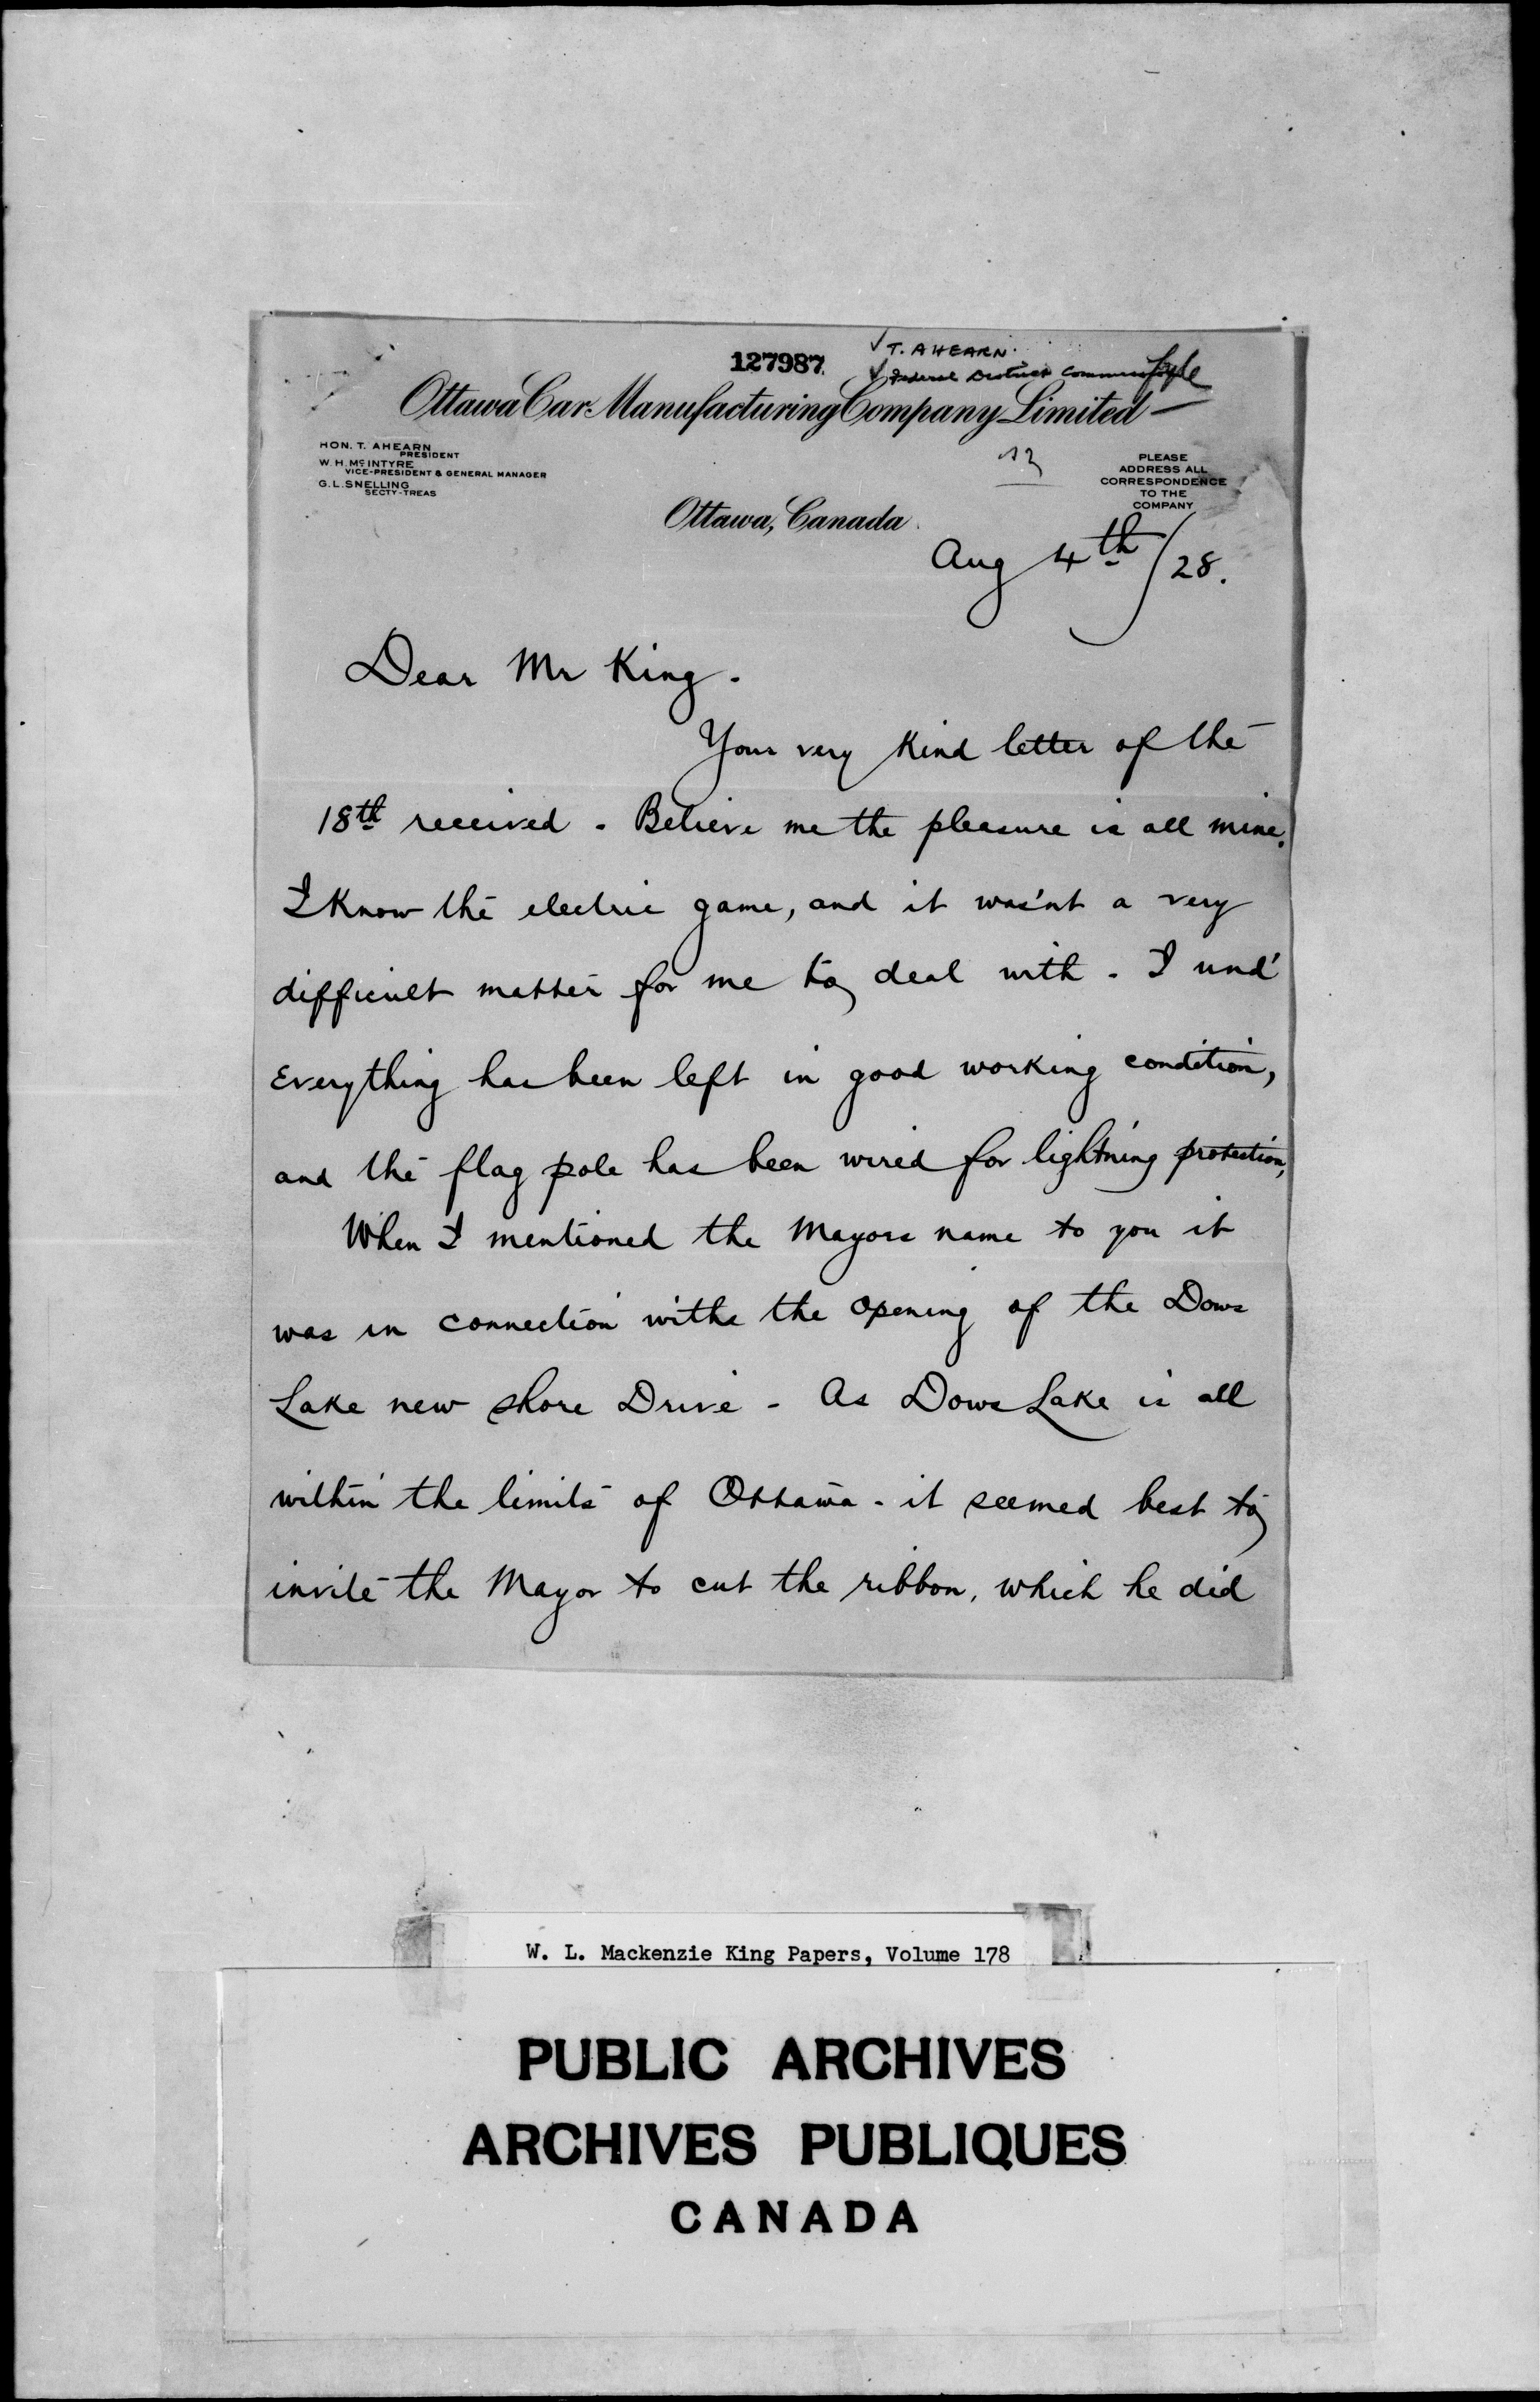 127987
√ T. AHEARN.
√ Federal District Commission
Ottawa Car Manufacturing Company Limited
HON. T. AHEARN
PRESIDENT
W. H. McINTYRE
VICE-PRESIDENT & GENERAL MANAGER
G. L. SNELLING
SECTY-TREAS
PLEASE
ADDRESS ALL
CORRESPONDENCE
TO THE
COMPANY
Ottawa, Canada
Aug 4th/28.
Dear Mr King.
Your very Kind letter of the
18th received - Believe me the pleasure is all mine.
I Know the electric game, and it was'nt a very
difficult matter for me to deal with - I und'
Everything has been left in good working condition,
and the flag pole has been wired for lightning protection,
When I mentioned the Mayors name to you it
was in connection withe the opening of the Dows
Lake new shore Drive - As Dows Lake is all
within the limits of Ottawa - it seemed best to
invite the Mayor to cut the ribbon, which he did
W. L. Mackenzie King Papers, Volume 178
PUBLIC ARCHIVES
ARCHIVES PUBLIQUES
CANADA